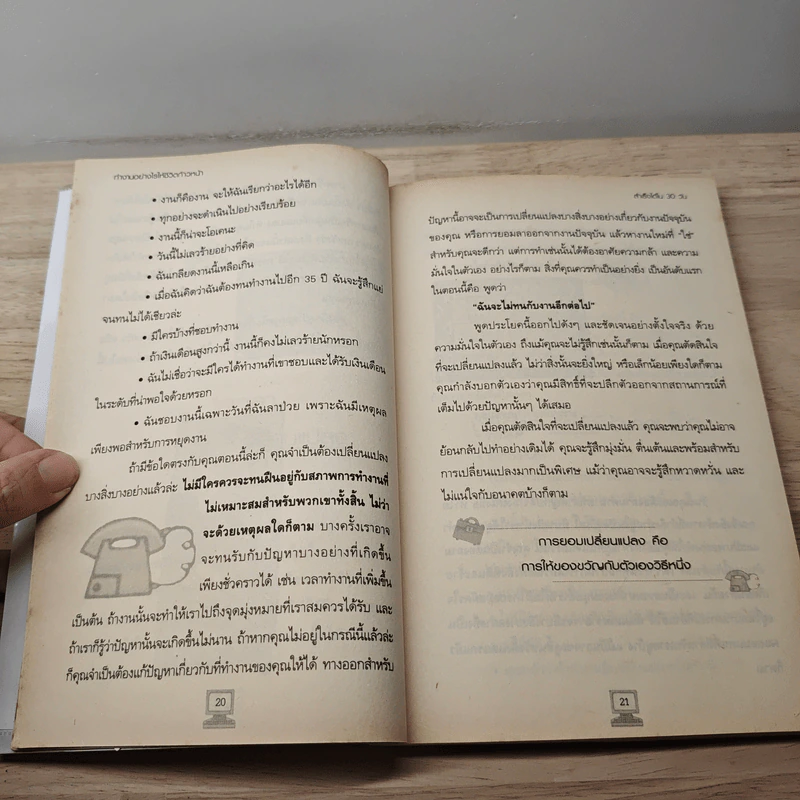 ทำงานอย่างไรให้ชีวิตก้าวหน้า
• งานก็คืองาน จะให้ฉันเรียกว่าอะไรได้อีก
• ทุกอย่างจะดำเนินไปอย่างเรียบร้อย
• งานนี้ก็น่าจะโอเคนะ
• วันนี้ไม่เลวร้ายอย่างที่คิด
• ฉันเกลียดงานนี้เหลือเกิน
• เมื่อฉันคิดว่าฉันต้องทนทำงานไปอีก 35 ปี ฉันจะรู้สึกแย่
จนทนไม่ได้เชียวล่ะ
• มีใครบ้างที่ชอบทำงาน
• ถ้าเงินเดือนสูงกว่านี้ งานนี้ก็คงไม่เลวร้ายนักหรอก
• ฉันไม่เชื่อว่าจะมีใครได้ทำงานที่เขาชอบและได้รับเงินเดือน
ในระดับที่น่าพอใจด้วยหรอก
• ฉันชอบงานนี้เฉพาะวันที่ฉันลาป่วย เพราะฉันมีเหตุผล
เพียงพอสำหรับการหยุดงาน
ถ้ามีข้อใดตรงกับคุณตอนนี้ล่ะก็ คุณจำเป็นต้องเปลี่ยนแปลง
บางสิ่งบางอย่างแล้วล่ะ ไม่มีใครควรจะทนฝืนอยู่กับสภาพการทำงานที่
ไม่เหมาะสมสำหรับพวกเขาทั้งสิ้น ไม่ว่า
จะด้วยเหตุผลใดก็ตาม บางครั้งเราอาจ
จะทนรับกับปัญหาบางอย่างที่เกิดขึ้น
เพียงชั่วคราวได้ เช่น เวลาทำงานที่เพิ่มขึ้น
เป็นต้น ถ้างานนั้นจะทำให้เราไปถึงจุดมุ่งหมายที่เราสมควรได้รับ และ
ถ้าเราก็รู้ว่าปัญหานั้นจะเกิดขึ้นไม่นาน ถ้าหากคุณไม่อยู่ในกรณีนี้แล้วล่ะ
ก็คุณจำเป็นต้องแก้ปัญหาเกี่ยวกับที่ทำงานของคุณให้ได้ ทางออกสำหรับ
20
สำเร็จได้ใน 30 วัน
ปัญหานี้อาจจะเป็นการเปลี่ยนแปลงบางสิ่งบางอย่างเกี่ยวกับงานปัจจุบัน
ของคุณ หรือการยอมลาออกจากงานปัจจุบัน แล้วหางานใหม่ที่ "ใช่"
สำหรับคุณจะดีกว่า แต่การทำเช่นนั้นได้ต้องอาศัยความกล้า และความ
มั่นใจในตัวเอง อย่างไรก็ตาม สิ่งที่คุณควรทำเป็นอย่างยิ่ง เป็นอันดับแรก
ในตอนนี้คือ พูดว่า
"ฉันจะไม่ทนกับงานอีกต่อไป"
พูดประโยคนี้ออกไปดังๆ และชัดเจนอย่างตั้งใจจริง ด้วย
ความมั่นใจในตัวเอง ถึงแม้คุณจะไม่รู้สึกเช่นนั้นก็ตาม เมื่อคุณตัดสินใจ
ที่จะเปลี่ยนแปลงแล้ว ไม่ว่าสิ่งนั้นจะยิ่งใหญ่ หรือเล็กน้อยเพียงใดก็ตาม
คุณกำลังบอกตัวเองว่าคุณมีสิทธิ์ที่จะปลีกตัวออกจากสถานการณ์ที่
เต็มไปด้วยปัญหานั้นๆ ได้เสมอ
เมื่อคุณตัดสินใจที่จะเปลี่ยนแปลงแล้ว คุณจะพบว่าคุณไม่อาจ
ย้อนกลับไปทำอย่างเดิมได้ คุณจะรู้สึกมุ่งมั่น ตื่นเต้นและพร้อมสำหรับ
การเปลี่ยนแปลงมากเป็นพิเศษ แม้ว่าคุณอาจจะรู้สึกหวาดหวั่น และ
ไม่แน่ใจกับอนาคตบ้างก็ตาม
การยอมเปลี่ยนแปลง คือ
การให้ของขวัญกับตัวเองวิธีหนึ่ง
21